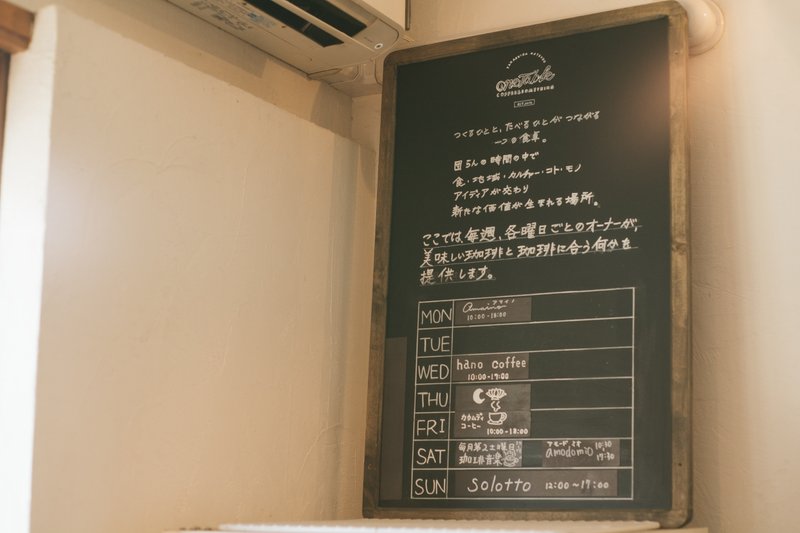 onetable
COFFEE&SOMETHING
つくるひとと、たべるひとが つながる
一つの食卓。
団らんの時間の中で
食・地域・カルチャー・コト・モノ
アイディアが交わり
新たな価値が生まれる場所。
ここでは、毎週、各曜日ごとのオーナーが、
美味しい珈琲と珈琲に合う何かを
提供します。
MON アマイノ
Amaino
10:00-18:00
TUE
WED hano coffee
10:00-17:00
THU
FRI カウムディ
コーヒー 10:00-18:00
SAT 毎月第2土曜日
珈琲音楽
アモードミオ
amodomio 10:30
17:30
SUN Solotto 12:00~17:00